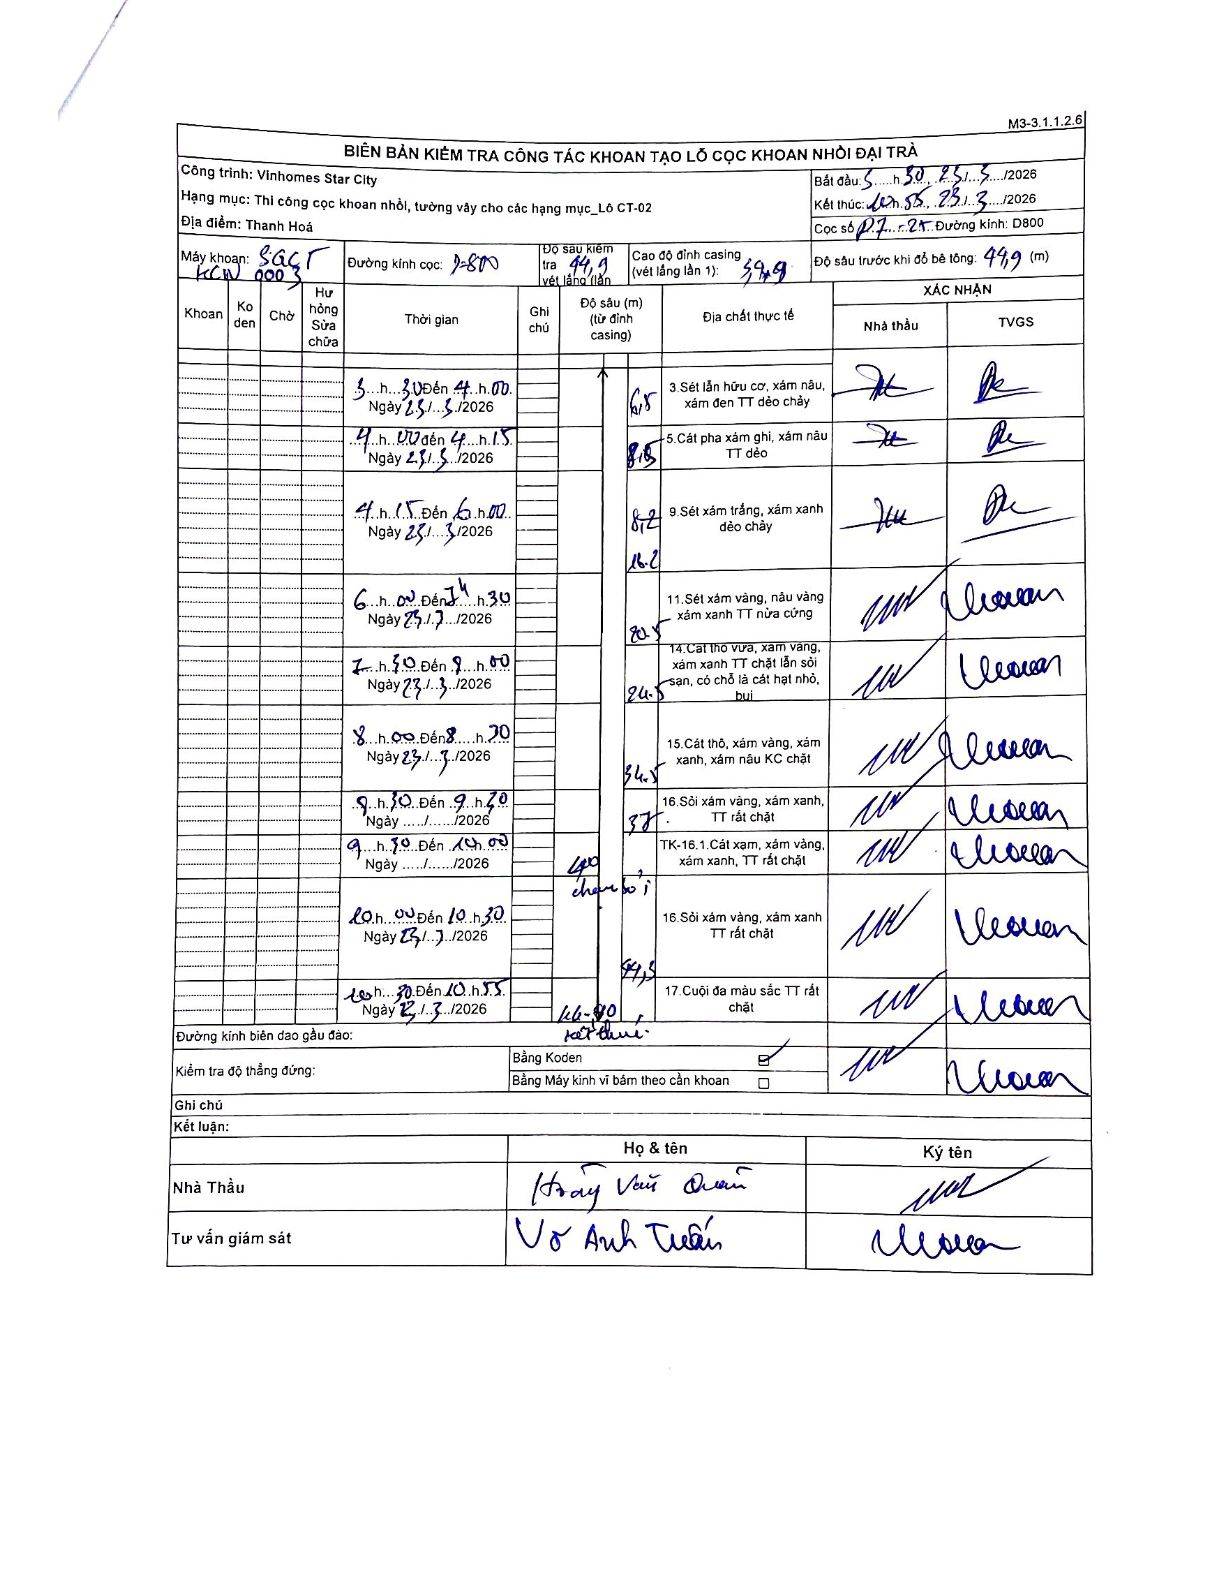 M3-3.1.1.2.6
BIÊN BẢN KIỂM TRA CÔNG TÁC KHOAN TẠO LỖ CỌC KHOAN NHỒI ĐẠI TRÀ
Công trình: Vinhomes Star City
Hạng mục: Thi công cọc khoan nhồi, tường vây cho các hạng mục_Lô CT-02
Địa điểm: Thanh Hoá
Bắt đầu: 3.....h 30, 23/...3..../2026
Kết thúc: 10h 55, 23/..3..../2026
Cọc số P7...-25. Đường kính: D800
Máy khoan: SGCT
KCN 0003
Đường kính cọc: D800
Độ sâu kiểm
tra 44,9
vét lắng (lần
Cao độ đỉnh casing
(vét lắng lần 1):
Độ sâu trước khi đổ bê tông: 44,9 (m)
Khoan
Ko
den
Chờ
Hư
hỏng
Sửa
chữa
Thời gian
Ghi
chú
Độ sâu (m)
(từ đỉnh
casing)
Địa chất thực tế
XÁC NHẬN
Nhà thầu
TVGS
3...h...30Đến 4...h.00.
Ngày 23./...3../2026
6,5
3.Sét lẫn hữu cơ, xám nâu,
xám đen TT dẻo chảy
..4..h..00 đến 4...h.15.
Ngày 23/..3.../2026
5.Cát pha xám ghi, xám nâu
TT dẻo
..4..h.15..Đến 6.h.00..
Ngày 23./...3/2026
8,2
16.2
9.Sét xám trắng, xám xanh
dẻo chảy
6...h..00.Đến....h.30
Ngày 23/.3.../2026
20.5
11.Sét xám vàng, nâu vàng
xám xanh TT nửa cứng
7...h.30..Đến .8...h.00
Ngày 23./..3.../2026
24.5
14.Cát thô vừa, xám vàng,
xám xanh TT chặt lẫn sỏi
sạn, có chỗ là cát hạt nhỏ,
bụi
.8...h.00..Đến8.....h.30
Ngày 23./...3./2026
34.5
15.Cát thô, xám vàng, xám
xanh, xám nâu KC chặt
..h.30..Đến ..9..h.30
Ngày ...../....../2026
37
16.Sỏi xám vàng, xám xanh,
TT rất chặt
9...h..30..Đến .10h.00
Ngày ...../....../2026
40
chạm sỏi
TK-16.1.Cát xạm, xám vàng,
xám xanh, TT rất chặt
10.h...00Đến 10..h.30.
Ngày 23/..3../2026
44,3
16.Sỏi xám vàng, xám xanh
TT rất chặt
..10h...30.Đến 10.h.55.
Ngày 23./..3./2026
44.90
kết thúc
17.Cuội đa màu sắc TT rất
chặt
Đường kính biên dao gầu đào:
Kiểm tra độ thẳng đứng:
Bằng Koden ☑
Bằng Máy kinh vĩ bám theo cần khoan ☐
Ghi chú
Kết luận:
Họ & tên
Ký tên
Nhà Thầu
Hoàng Văn Quân
Tư vấn giám sát
Võ Anh Tuấn